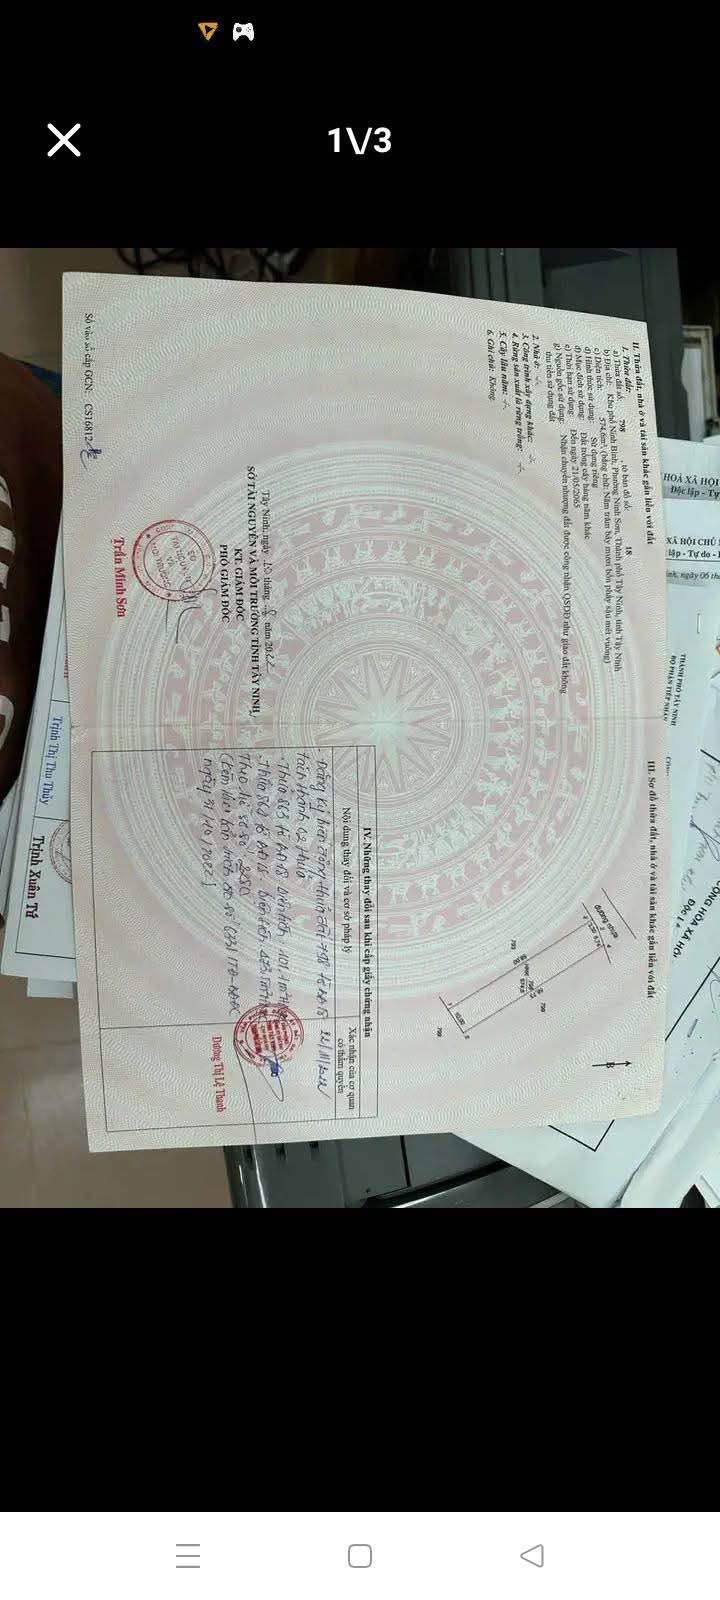 1\/3
II. Thửa đất, nhà ở và tài sản khác gắn liền với đất
1. Thửa đất:
a) Thửa đất số: 798 tờ bản đồ số: 18
b) Địa chỉ: Khu phố Ninh Bình, Phường Ninh Sơn, Thành phố Tây Ninh, tỉnh Tây Ninh
c) Diện tích: 574,6m², (bằng chữ: Năm trăm bảy mươi bốn phẩy sáu mét vuông)
d) Hình thức sử dụng: Sử dụng riêng
đ) Mục đích sử dụng: Đất trồng cây hàng năm khác
e) Thời hạn sử dụng: Đến ngày 21/05/2065
g) Nguồn gốc sử dụng: Nhận chuyển nhượng đất được công nhận QSDĐ như giao đất không
thu tiền sử dụng đất
2. Nhà ở:
3. Công trình xây dựng khác:
4. Rừng sản xuất là rừng trồng:
5. Cây lâu năm:
6. Ghi chú: Không
Tây Ninh, ngày 10 tháng 8 năm 2022
SỞ TÀI NGUYÊN VÀ MÔI TRƯỜNG TỈNH TÂY NINH
KT. GIÁM ĐỐC
PHÓ GIÁM ĐỐC
Trần Minh Sơn
Số vào sổ cấp GCN: CS16812
III. Sơ đồ thửa đất, nhà ở và tài sản khác gắn liền với đất
đường nhựa
B
799
798
574,6
799
799
10,00
IV. Những thay đổi sau khi cấp giấy chứng nhận
Nội dung thay đổi và cơ sở pháp lý
Xác nhận của cơ quan
có thẩm quyền
- Đăng ký biến động thửa đất 798 tờ BĐ 18
tách thành 02 thửa
- Thửa 863 tờ BĐ 18 Diện tích: 101,1m²
- Thửa 864 tờ BĐ 18 Diện tích: 473,5m²
Theo hồ sơ số
ngày 31/10/2022)
22/11/2022
Dương Thị Lệ Thanh
HOÀ XÃ HỘI
Độc lập - Tự
XÃ HỘI CHỦ
lập - Tự do -
ninh, ngày 06 th
THÀNH PHỐ TÂY NINH
BỘ PHẬN TIẾP NHẬN
CỘNG HÒA XÃ HỘI
Độc l
Trịnh Thị Thu Thủy
Trịnh Xuân Tứ